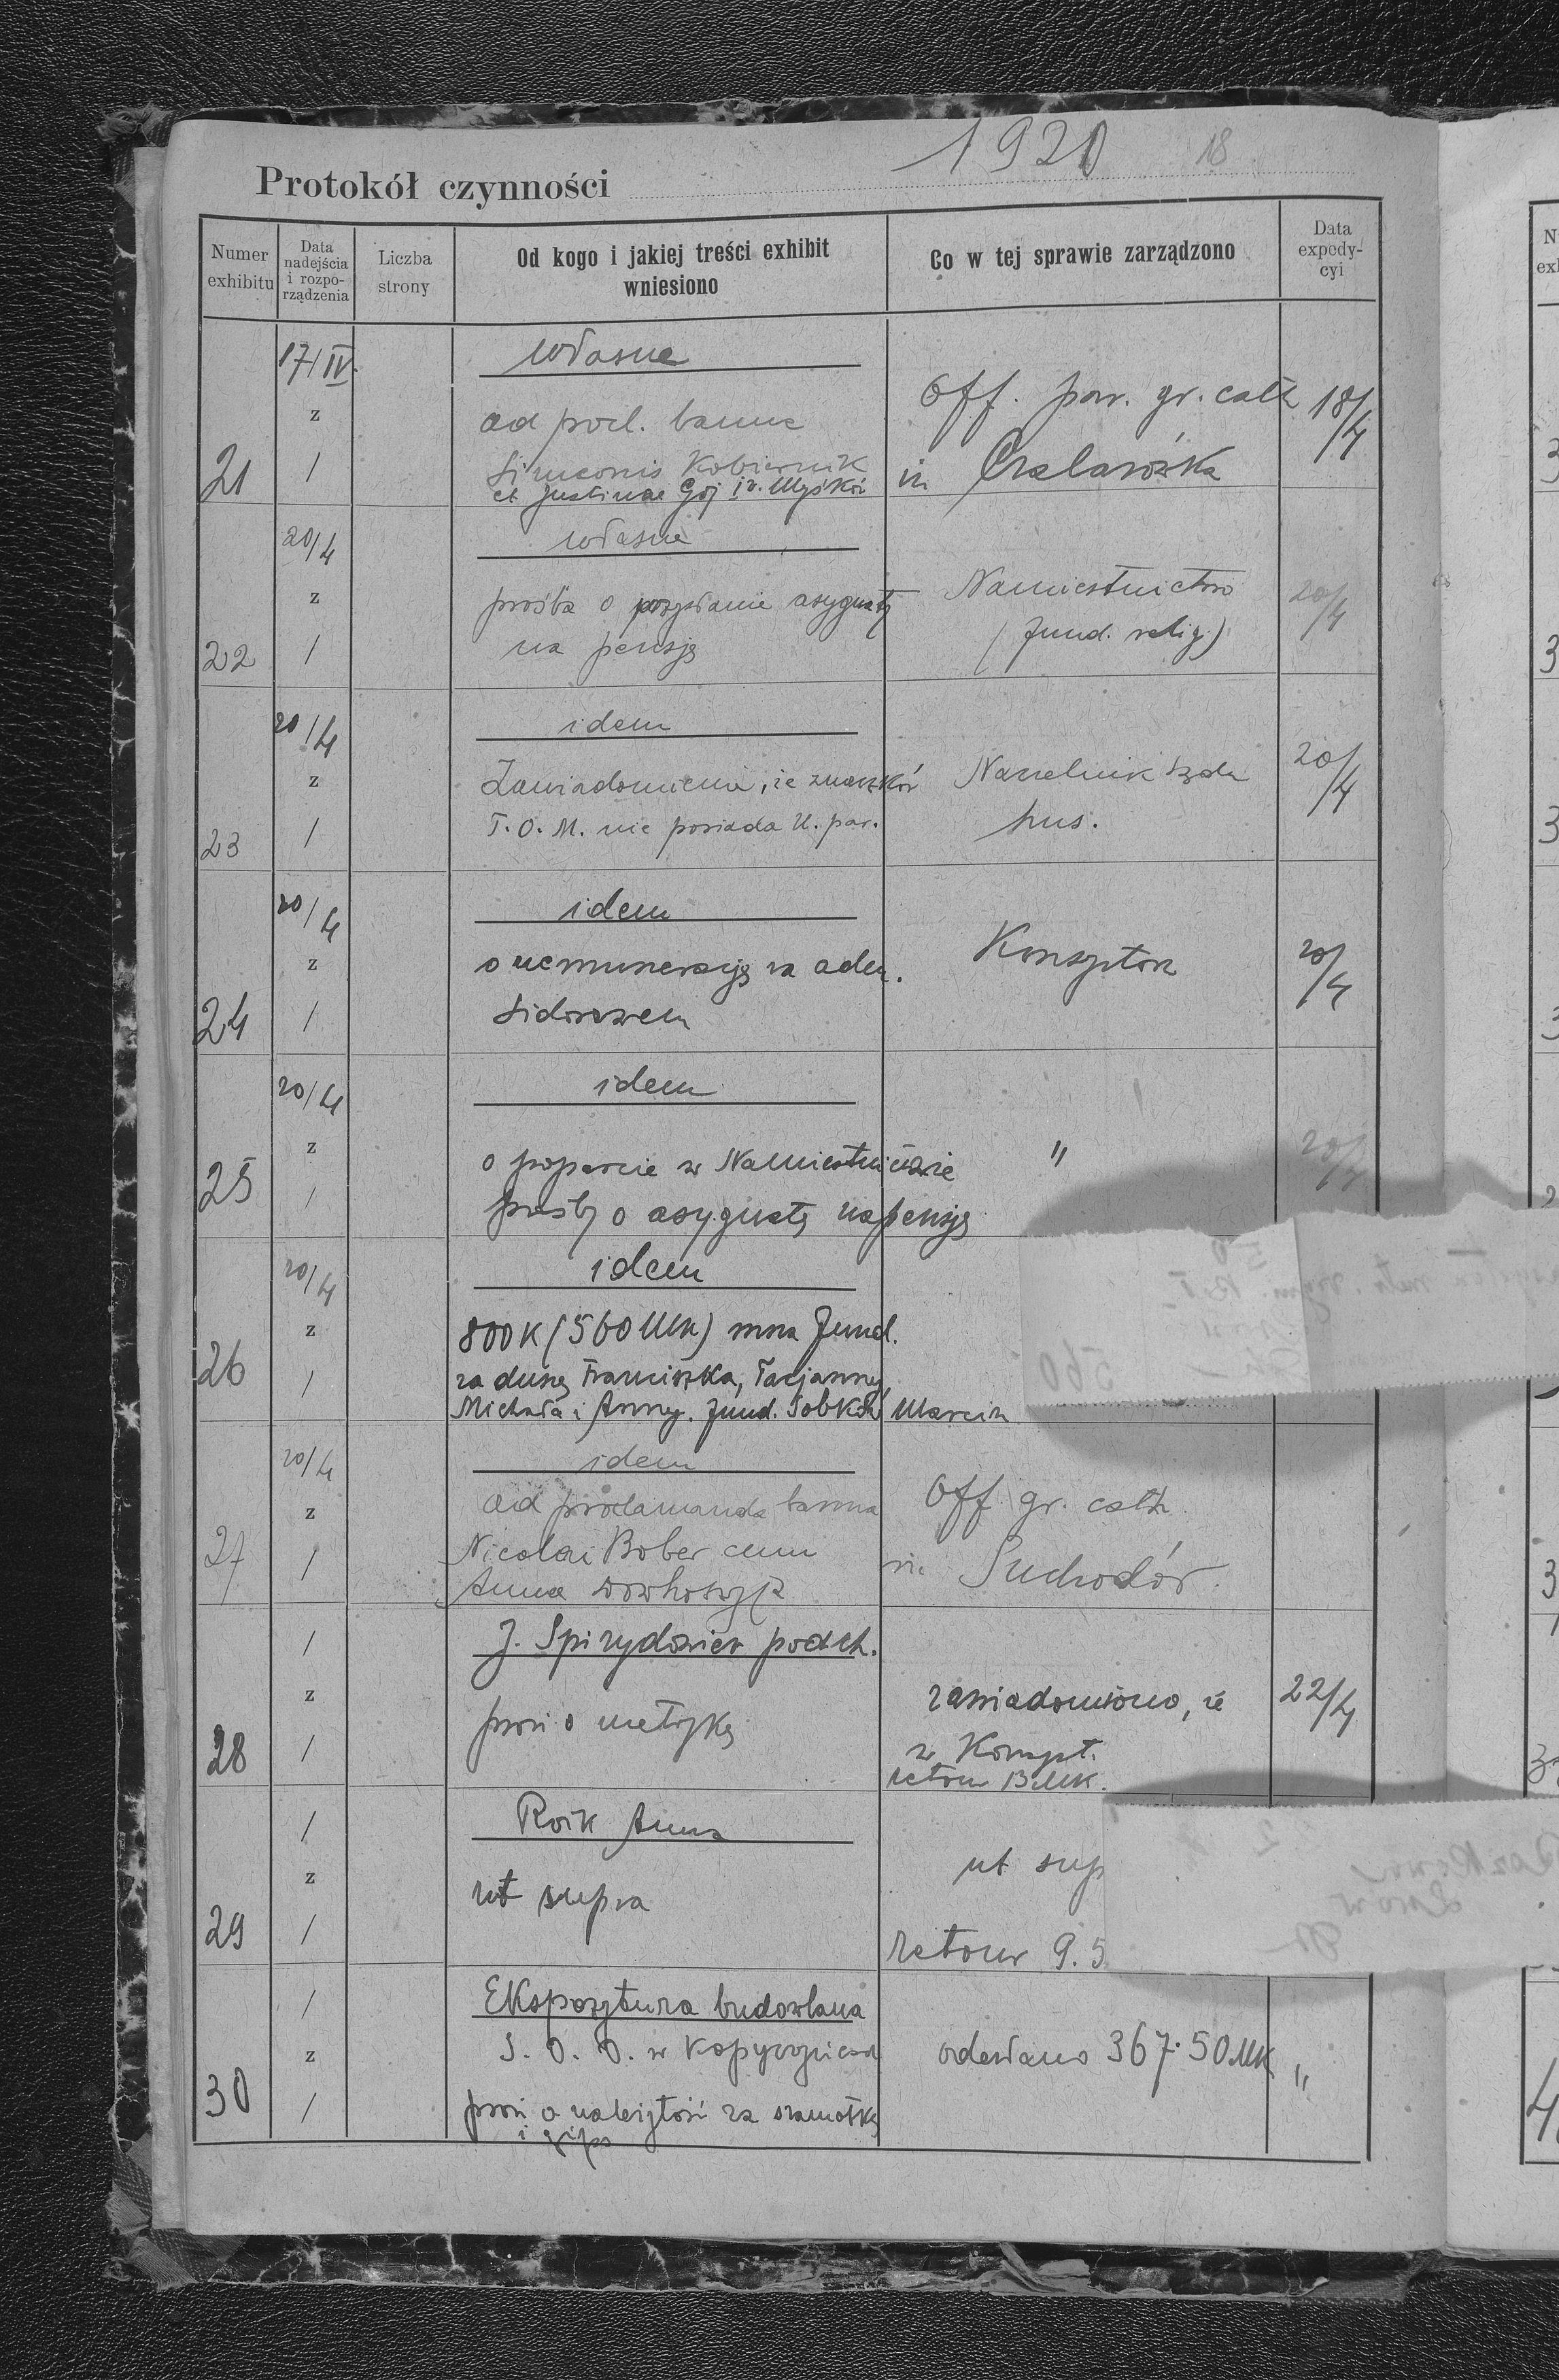 1920 18
Protokół czynności
Numer exhibitu
Data nadejścia i rozporządzenia
Liczba strony
Od kogo i jakiej treści exhibit wniesiono
Co w tej sprawie zarządzono
Data expedycyi
17/IV. własne
z ad procl. banna Off. par. gr. cath 18/4
21 / Simeonis Kobiernik in Czabarówka
et Justinae Gój
20/4 własne
z prośba o przysłanie asygnaty Namiestnictwo 20/4
22 / na pensję (fund. relig.)
20/4 idem
z Zawiadomienie, że znaczków Naczelnik Sądu 20/4
23 / T. O. M. nie posiada U. par. hus.
20/4 idem
z o remunerację za adm. Konsystorz 20/4
24 / Sidorowem
20/4 idem
z o poparcie w Namiestnictwie " 20/4
25 / prośby o asygnatę na pensję
20/4 idem
z 800K (560 Mk) msza Fund.
26 / za duszę Franciszka, Tacjanny,
Michała i Anny. fund. Sobków Marcin
20/4 idem
z ad proclamanda banna Off gr. cath.
27 / Nicolai Bober cum in Suchodół
Anna Dowhoszyja
/ J. Spirydowicz podch.
z prosi o metrykę zawiadomiono, że 22/4
28 / w Konsyst.
retour
/ Roik Anna
z ut supra ut sup
29 / retour 9.5
/ Ekspozytura budowlana
z S. O. O. w Kopyczyńcach odesłano 367·50 Mk "
30 / prosi o należytość za szamotkę
i gips
560